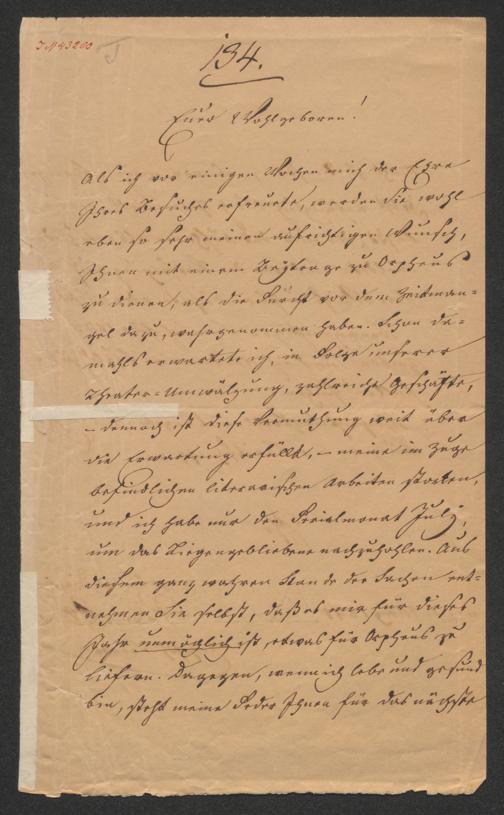 I.N. 43200
134.
Euer Wohlgeboren!
Als ich vor einigen Wochen mich der Ehre
Ihres Besuches erfreuete, werden Sie wohl
eben so sehr meinen aufrichtigen Wunsch,
Ihnen mit einem Beytrage zu Orpheus
zu dienen, als die Furcht vor dem Zeitman-
gel dazu, wahrgenommen haben. Schon da-
mahls erwartete ich, in Folge unserer
Theater-Umwälzung, zahlreiche Geschäfte,
– dennoch ist diese Vermuthung weit über
die Erwartung erfüllt, – meine im Zuge
befindlichen literarischen Arbeiten stocken,
und ich habe nur den Ferialmonat July,
um das Liegengebliebene nachzuhohlen. Aus
diesem ganz wahren Stande der Sachen ent-
nehmen Sie selbst, daß es mir für dieses
Jahr unmöglich ist, etwas für Orpheus zu
liefern. Dagegen, wenn ich lebe und gesund
bin, steht meine Feder Ihnen für das nächste